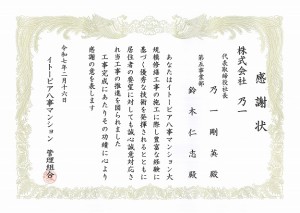 感謝状
株式会社 乃一
代表取締役社長
乃一剛英殿
第五事業部
鈴木仁志殿
あなたはイトーピア八事マンション大
規模修繕工事の施工に際し豊富な経験に
基づく優秀な技術を発揮されるとともに
居住者の要望に対しても誠心誠意対応さ
れ当工事の推進を図られました
工事完成にあたりその功績に心より
感謝の意を表します
令和七年二月十六日
イトーピア八事マンション 管理組合